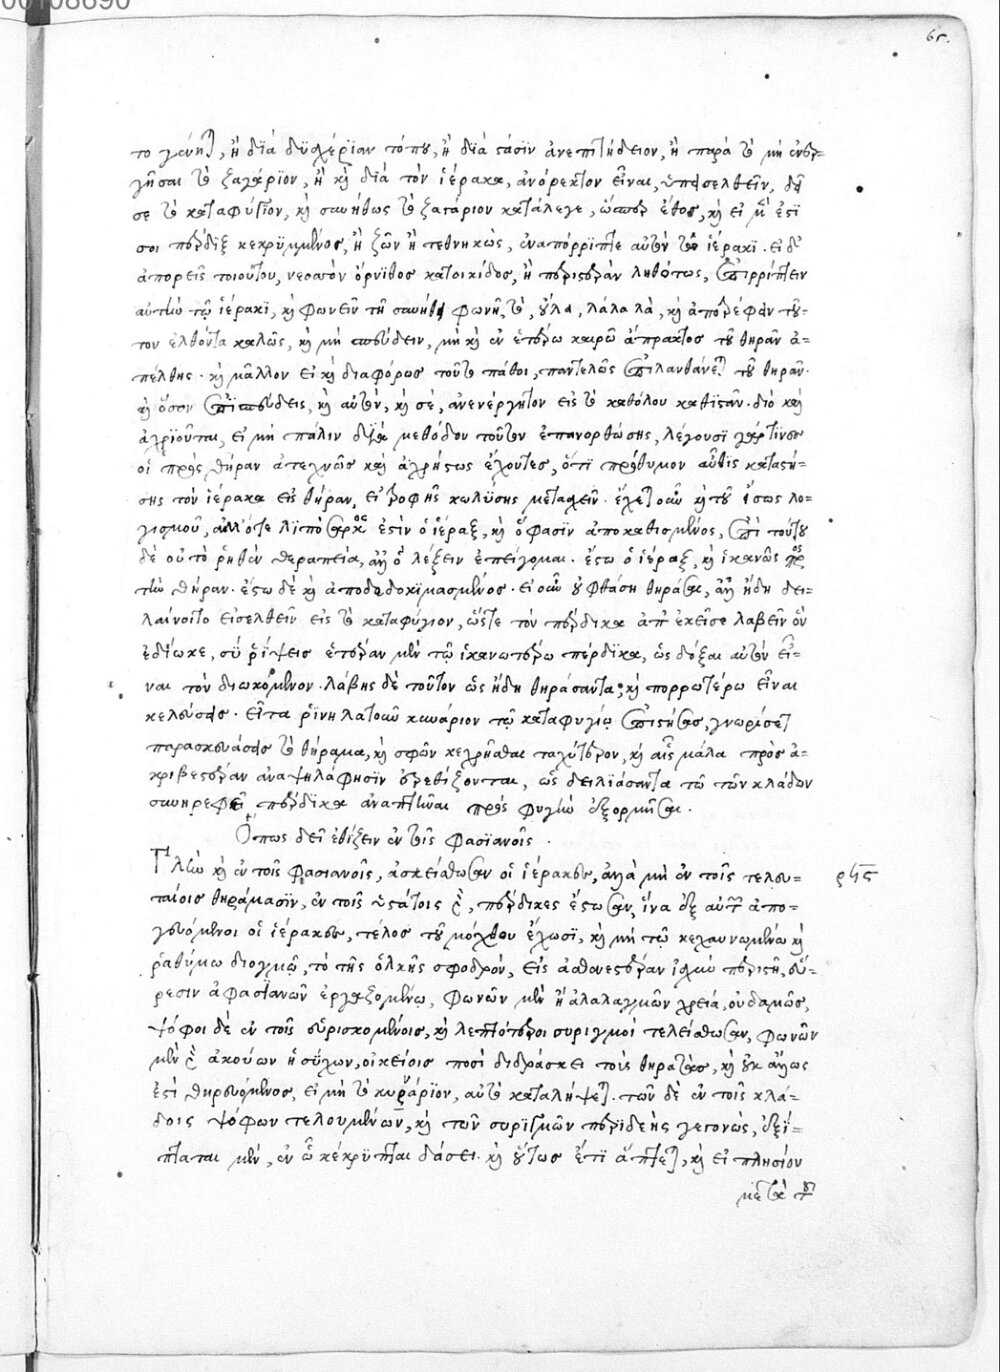 00108690
65.
το γένηται, ἢ διὰ δυσχέρειαν τόπου, ἢ διὰ στάσιν ἀνεπιτήδειον, ἢ παρὰ τὸ μὴ
σαι τὸ ζαγάριον, ἢ καὶ διὰ τὸν ἱέρακα, ἀνόρεκτον εἶναι, ὑπεισελθεῖν, δεῖ
σε τὸ καταφύγιον, καὶ συνήθως τὸ ζαγάριον κατάλεγε, ὥσπερ ἔθος, καὶ εἰ μέν ἐστί
σοι πέρδιξ κεκρυμμένος, ἢ ζῶν ἢ τεθνηκὼς, ἐναπόρριπτε αὐτὸν τῷ ἱέρακι. εἰ δὲ
ἀπορεῖς τοιούτου, νεοσσὸν ὄρνιθος κατοικίδος, ἢ περιστερὰν ἐπιρρίπτειν
αὐτὴν τῷ ἱέρακι, καὶ φωνεῖν τῇ συνήθει φωνῇ, τὸ, ὕλα, λάλα λὰ, καὶ ἀποτρέφειν τοῦ-
τον ἐλθόντα καλῶς, καὶ μὴ σπεύδειν, μὴ καὶ ἐν ἑτέρω καιρῶ ἄπρακτος τοῦ θηρᾶν ἀ-
πέλθης. καὶ μᾶλλον εἰ καὶ διαφόρως τοῦτο πάθοι, παντελῶς ἐπιλανθάνεται τοῦ θηρᾶν.
καὶ ὅσον ἐπισπεύδεις, καὶ αὐτὸν, καὶ σὲ, ἀνενέργητον εἰς τὸ καθόλου καθιστᾶν. διὸ καὶ
ἀγριοῦται, εἰ μὴ πάλιν διὰ μεθόδου τοῦτον ἐπανορθώσης, λέγουσι γάρ τινες
οἱ πρὸς θήραν ἀτεχνῶς καὶ ἀχρήστως ἔχοντες, ὅτι πρόθυμον αὖθις καταστή-
σης τὸν ἱέρακα εἰς θήραν, εἰ τροφῆς κωλύσης μετασχεῖν. ἔχεται οὖν καὶ τοῦ ἴσως λο-
γισμοῦ, ἀλλ' ὅτε λιπόσαρκος ἐστὶν ὁ ἱέραξ, καὶ ὄφασιν ἀποκαθισμένος, ἐπὶ τούτου
δὲ οὐ τὸ ῥηθὲν θεραπεία, ἀλλ' ὃ λέξειν ἐπείγομαι. ἔστω ὁ ἱέραξ, καὶ ἱκανῶς πρὸς
τὴν θήραν. ἔστω δὲ καὶ ἀποδεδοκιμασμένος. εἰ οὖν οὐ φθάση θηρᾶσαι, ἀλλ' ἤδη δει-
λαίνοιτο εἰσελθεῖν εἰς τὸ καταφύγιον, ὥστε τὸν πέρδικα ἀπ' ἐκεῖσε λαβεῖν ὃν
ἐδίωκε, σὺ ῥίψεις ἕτερον μὲν τῷ ἱκανωτέρω πέρδικα, ὡς δόξαι αὐτὸν εἶ-
ναι τὸν διωκόμενον. λάβης δὲ τοῦτον ὡς ἤδη θηράσαντα; καὶ πορρωτέρω εἶναι
κελεύσας. εἶτα ῥινηλάτουν κυνάριον τῷ καταφυγίῳ ἐπιστήσας, γνωρίσεται
παρασκευάσας τὸ θήραμα, καὶ σφῶν κεχρῆσθαι ταχύτερον, καὶ εἰς μάλα πρὸς ἀ-
κριβεστέραν ἀναψηλάφησιν ἐρεθίζονται, ὡς δειλιάσαντα τῶ τῶν κλάδων
συνηρεφεῖ πέρδικα ἀναπτῆναι πρὸς φυγὴν ἐξορμῆσαι.
Ὅπως δεῖ ἐθίζειν ἐν τοῖς φασιανοῖς.
Πλὴν καὶ ἐν τοῖς φασιανοῖς, ἀσκείσθωσαν οἱ ἱέρακες, ἀλλὰ μὴ ἐν τοῖς τελευ-
ταίοις θηράμασιν, ἐν τοῖς ὑστάτοις δὲ, πέρδικες ἔστωσαν, ἵνα ἐξ αὐτῶν ἀπο-
γευόμενοι οἱ ἱέρακες, τέλος τοῦ μόχθου ἔχωσι, καὶ μὴ τῷ κεχαυνωμένω καὶ
ῥαθύμω διογμῷ, τὸ τῆς ὁλκῆς σφοδρὸν, εἰς ἀσθενεστέραν ἰσχὺν περιστῆ, εὕ-
ρεσιν ἀφασιανῶν ἐργαζομένω, φωνῶν μὲν ἢ ἀλαλαγμῶν χρεία, οὐδαμῶς,
ψόφοι δὲ ἐν τοῖς εὑρισκομένοις, καὶ λεπτότεροι συριγμοὶ τελείσθωσαν, φωνῶν
μὲν δὲ ἀκούων ἡσύχων, οἰκείοις ποσὶ διδράσκει τοὺς θηρατὰς, καὶ οὐκ ἄλλως
ἐστὶ θηρευόμενος, εἰ μὴ τὸ κυνάριον, αὐτὸ καταλήψεται. τῶν δὲ ἐν τοῖς κλά-
δοις ψόφων τελουμένων, καὶ τῶν συριγμῶν περιδεὴς γεγονὼς, ἐξί-
πταται μὲν, ἐν ᾧ κέκρυπται δάσει. καὶ οὕτως ἔτι ἅπτεται, καὶ εἰ πλησίον
ρϟϛ
μετὰ τοῦ